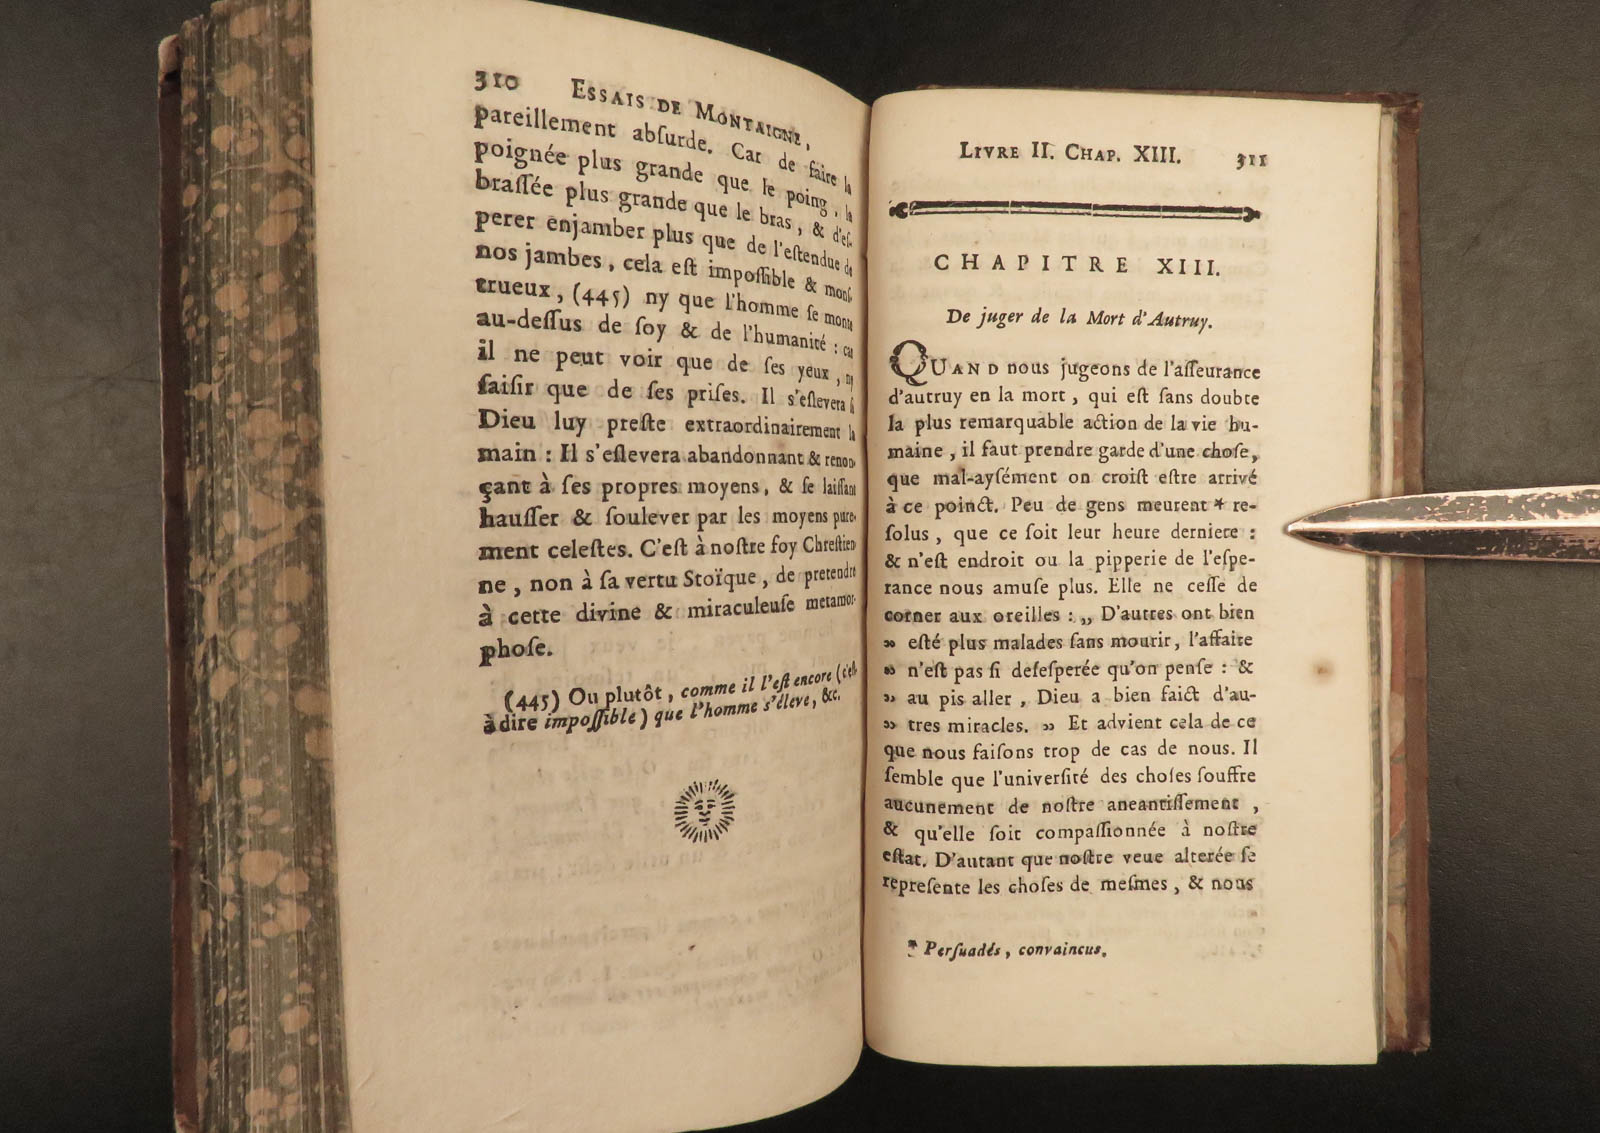 310 ESSAIS DE MONTAIGNE,
pareillement abſurde. Car de faire la
poignée plus grande que le poing, la
braſſée plus grande que le bras, & d'eſ-
perer enjamber plus que de l'eſtendue de
nos jambes, cela eſt impoſſible & monſ-
trueux, (445) ny que l'homme ſe monte
au-deſſus de ſoy & de l'humanité : car
il ne peut voir que de ſes yeux, ny
ſaiſir que de ſes priſes. Il s'eſlevera ſi
Dieu luy preſte extraordinairement la
main : Il s'eſlevera abandonnant & renon-
çant à ſes propres moyens, & ſe laiſſant
hauſſer & ſoulever par les moyens pure-
ment celeſtes. C'eſt à noſtre foy Chreſtien-
ne, non à ſa vertu Stoïque, de pretendre
à cette divine & miraculeuſe metamor-
phoſe.
(445) Ou plutôt, comme il l'eſt encore (c'eſt-
à dire impoſſible) que l'homme s'éleve, &c.
LIVRE II. CHAP. XIII. 311
CHAPITRE XIII.
De juger de la Mort d'Autruy.
QUAND nous jugeons de l'aſſeurance
d'autruy en la mort, qui eſt ſans doubte
la plus remarquable action de la vie hu-
maine, il faut prendre garde d'une choſe,
que mal-ayſément on croiſt eſtre arrivé
à ce poinct. Peu de gens meurent * re-
ſolus, que ce ſoit leur heure derniere :
& n'eſt endroit ou la pipperie de l'eſpe-
rance nous amuſe plus. Elle ne ceſſe de
corner aux oreilles : ,, D'autres ont bien
„ eſté plus malades ſans mourir, l'affaire
„ n'eſt pas ſi deſeſperée qu'on penſe : &
„ au pis aller, Dieu a bien faict d'au-
„ tres miracles. „ Et advient cela de ce
que nous faiſons trop de cas de nous. Il
ſemble que l'univerſité des choſes ſouffre
aucunement de noſtre aneantiſſement,
& qu'elle ſoit compaſſionnée à noſtre
eſtat. D'autant que noſtre veue alterée ſe
repreſente les choſes de meſmes, & nous
* Perſuadés, convaincus.